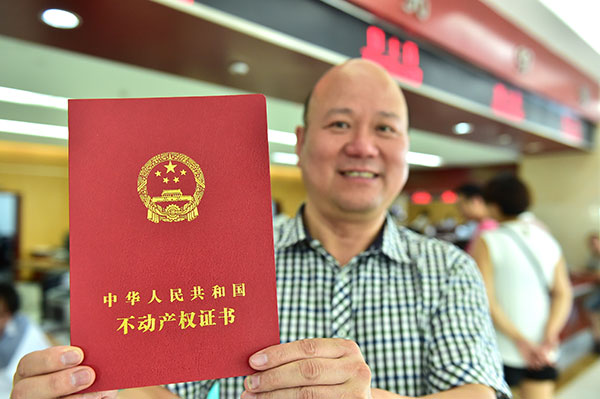 中华人民共和国
不动产权证书